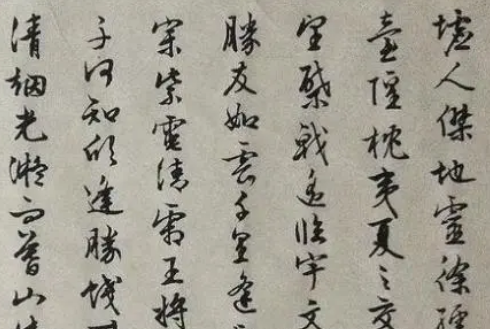 墟人傑地靈徐孺
臺隍枕夷夏之交
望棨戟遥臨宇文
勝友如雲千里逢
宗紫電清霜王將
子何知躬逢勝餞
清烟光凝而暮山